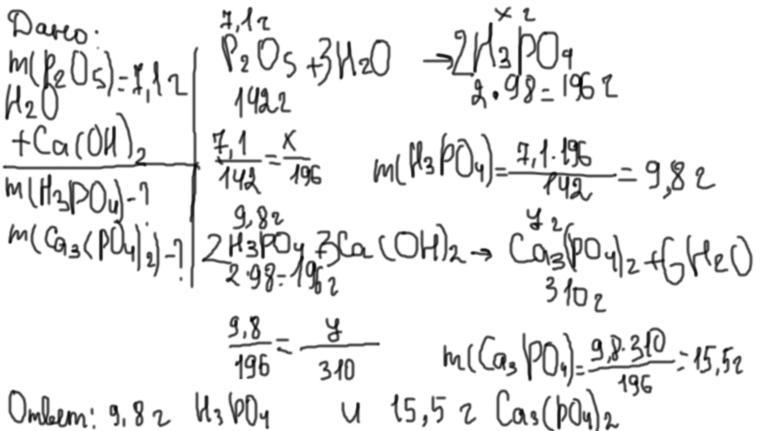 Дано:
m(P₂O₅)=7,1г
H₂O
+Ca(OH)₂
m(H₃PO₄)-?
m(Ca₃(PO₄)₂)-?
7,1г x г
P₂O₅+3H₂O → 2H₃PO₄
142г 2·98=196г
7,1/142 = x/196 m(H₃PO₄)= 7,1·196/142 = 9,8г
9,8г y г
2H₃PO₄+3Ca(OH)₂ → Ca₃(PO₄)₂+6H₂O
2·98=196г 310г
9,8/196 = y/310 m(Ca₃(PO₄)= 9,8·310/196 =15,5г
Ответ: 9,8г H₃PO₄ и 15,5г Ca₃(PO₄)₂